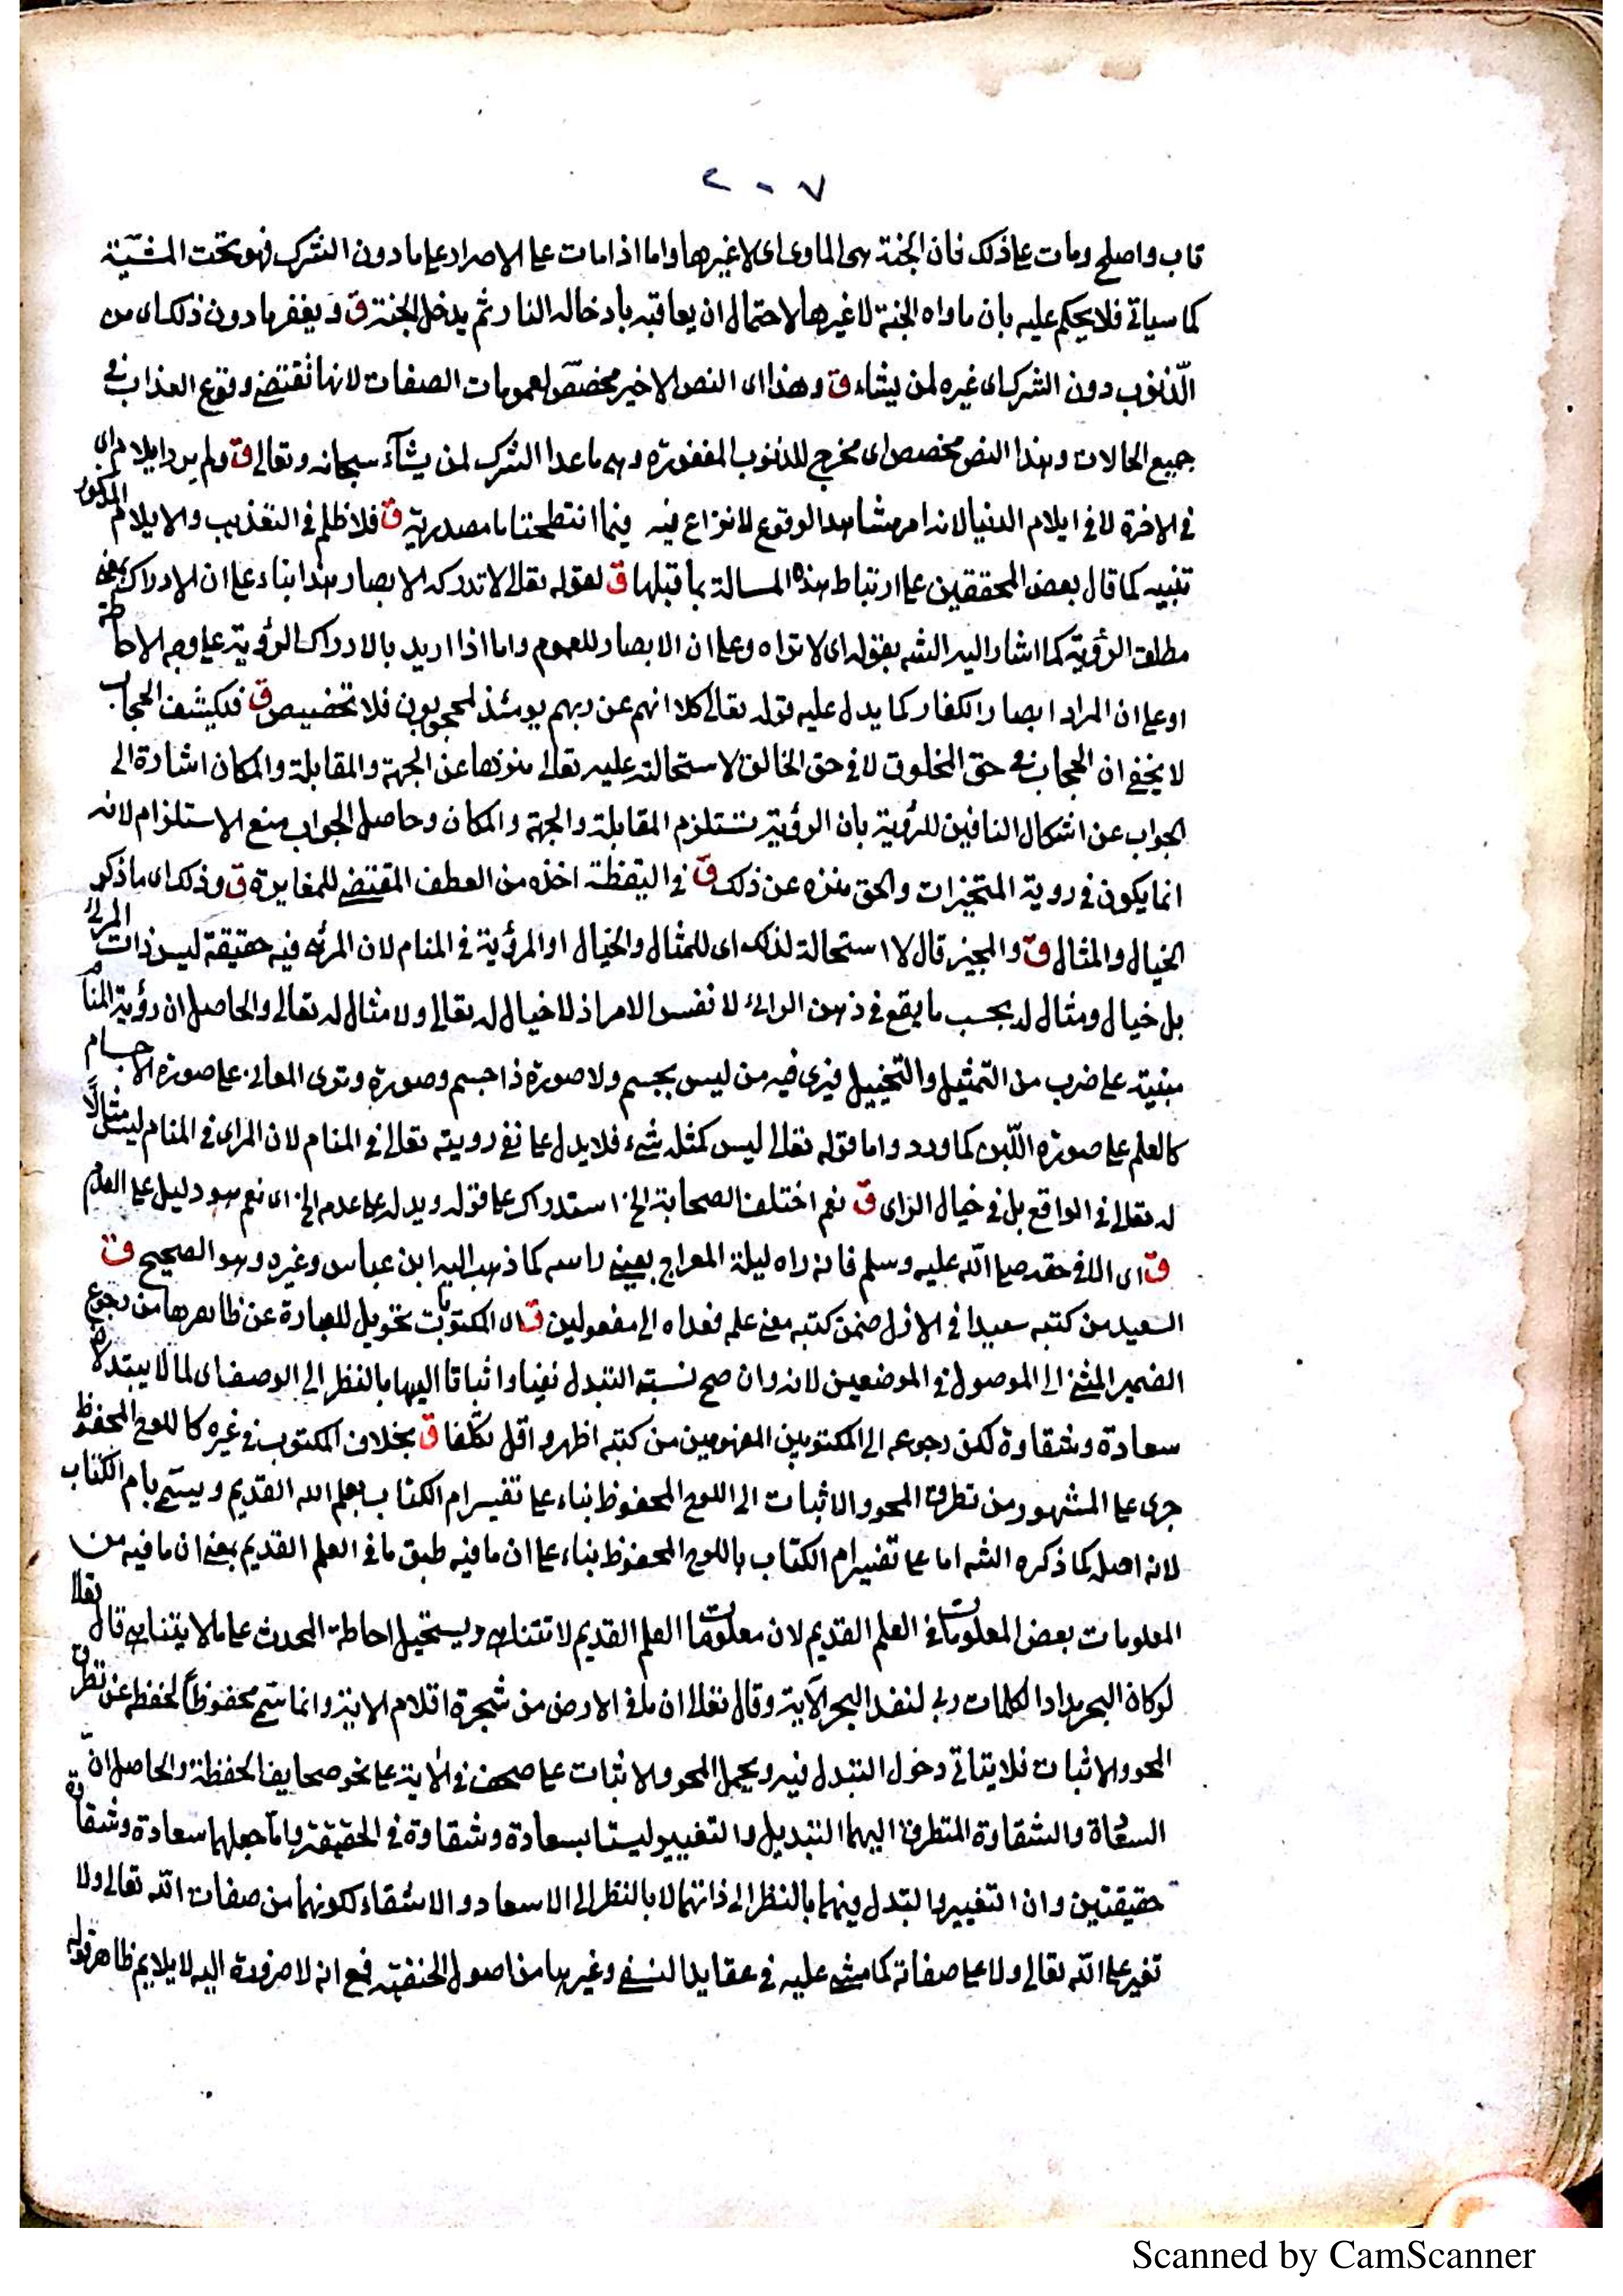 ٢٠٧
تاب واصلح ومات على ذلك فان الجنة هى الماوى اى لا غيرها واما اذا مات على الاصرار على ما دون الشرك فهو تحت المشيّة
كما سياتى فلا يحكم عليه بان ماواه الجنة لا غيرها لاحتمال ان يعاقبه بادخاله النار ثم يدخل الجنة ق ويغفر ما دون ذلك اى من
الذنوب دون الشرك اى غيره لمن يشاء ق وهذا اى النص الاخير مخصّص لعمومات الصفات لانها تقتضى وقوع العذاب فى
جميع الحالات وهذا النص مخصص اى مخرج للذنوب المغفورة وهى ما عدا الشرك لمن يشآء سبحانه وتعالى ق ولم يرد ايلام اى
فى الاخرة لا فى ايلام الدنيا لانه امر مشاهد الوقوع لا نزاع فيه فيما انتطحتا ما مصدرية ق فلا ظلم فى التعذيب والايلام المذكور
تنبيه كما قال بعض المحققين على ارتباط هذه المسالة بما قبلها ق لقوله تعالى لا تدركه الابصار هذا بناء على ان الادراك بمعنى
مطلق الرؤية كما اشار اليه الشه بقوله اى لا تراه وعلى ان الابصار للعموم واما اذا اريد بالادراك الرؤية على وجه الاحاطة
او على ان المراد ابصار الكفار كما يدل عليه قوله تعالى كلا انهم عن ربهم يومئذ لمحجوبون فلا تخصيص ق فيكشف الحجاب
لا يخفى ان الحجاب فى حق المخلوق لا فى حق الخالق لاستحالته عليه تعالى منزها عن الجهة والمقابلة والمكان اشارة الى
الجواب عن اشكال النافين للرؤية بان الرؤية تستلزم المقابلة والجهة والمكان وحاصل الجواب منع الاستلزام لانه
انما يكون فى روية المتحيزات والحق منزه عن ذلك ق فى اليقظة اخذه من العطف المقتضى للمغايرة ق وذلك اى ما ذكر
الخيال والمثال ق والمجيز قال لا استحالة لذلك اى للمثال والخيال او المرؤية فى المنام لان المرئى فيه حقيقة ليس ذات المرئى
بل خيال ومثال له بحسب ما يقع فى ذهن الرائى لا نفس الامر اذ لا خيال له تعالى ولا مثال له تعالى والحاصل ان رؤية المنام
مبنية على ضرب من التمثيل والتخييل فيرى فيه من ليس بجسم ولا صورة ذا جسم وصورة وترى المعانى على صورة الاجسام
كالعلم على صورة اللبن كما ورد واما قوله تعالى ليس كمثله شىء فلا يدل على نفى رويته تعالى فى المنام لان المراى فى المنام ليس مثالًا
له تعالى فى الواقع بل فى خيال الراى ق نعم اختلف الصحابة الخ استدراك على قوله ويدل على عدم الخ اى نعم هو دليل على العدم
ق اى الا فى حقه صلى الله عليه وسلم فانه راه ليلة المعراج بعينى راسه كما ذهب اليه ابن عباس وغيره وهو الصحيح ق
السعيد من كتبه سعيدا فى الازل ضمن كتبه معنى علم فعداه الى مفعولين ق اى المكتوبات تحويل للعبارة عن ظاهرها من رجوع
الضمير المثنى الى الموصول فى الموضعين لانه وان صح نسبة التبدل نفيا واثباتا اليها بالنظر الى الوصف اى لما لا يبتدلا
سعادة وشقاوة لكن رجوعه الى المكتوبين المفهومين من كتبه اظهر واقل تكلفا ق بخلاف المكتوب فى غيره كاللوح المحفوظ
جرى على المشهور من تطرق المحو والاثبات الى اللوح المحفوظ بناء على تفسير ام الكتاب بعلم الله القديم ويسمى بام الكتاب
لانه اصله كما ذكره الشه اما على تفسير ام الكتاب باللوح المحفوظ بناء على ان ما فيه طبق ما فى العلم القديم بمعنى ان ما فيه من
المعلومات بعض المعلومات فى العلم القديم لان معلومات العلم القديم لا تتناهى ويستحيل احاطة المحدث على ما لا يتناهى قال تعالى
لو كان البحر مدادا لكلمات ربى لنفد البحر الآية وقال تعالى ان ما فى الارض من شجرة اقلام الاية وانما سمى محفوظاً لحفظه عن تطرق
المحو والاثبات فلا يتاتى دخول التبدل فيه ويحمل المحو والاثبات على صحف فى الاية على نحو صحايف الحفظة والحاصل ان
السعادة والشقاوة المتطرق اليهما التبديل والتغيير ليستا بسعادة وشقاوة فى الحقيقة واما جعلهما سعادة وشقاوة
حقيقتين وان التغيير والتبدل فيهما بالنظر الى ذاتهما لا بالنظر الى الاسعاد والاشقاء لكونهما من صفات الله تعالى ولا
تغير على الله تعالى ولا على صفاته كما مشى عليه فى عقايد النسفى وغيرها من اصول الحنفية فمع انه لا ضرورة اليه لا يلايم ظاهر قوله
Scanned by CamScanner